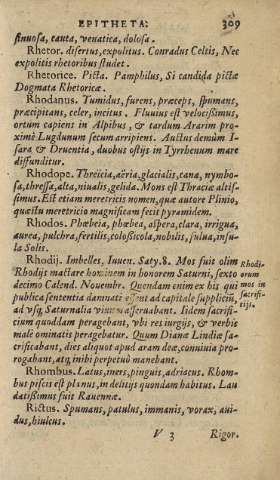 EPITHETA. 309
sinuosa, cauta, venatica, dolosa.
Rhetor. disertus, expolitus. Conradus Celtis, Nec
expolitis rhetoribus studet.
Rhetorice. Picta. Pamphilus, Si candida pictæ
Dogmata Rhetoricæ.
Rhodanus. Tumidus, furens, præceps, spumans,
præcipitans, celer, incitus. Fluuius est velocissimus,
ortum capiens in Alpibus, & tardum Ararim pro-
ximè Lugdunum secum arripiens. Auctus demùm I-
sara & Druentia, duobus ostijs in Tyrrhenum mare
diffunditur.
Rhodope. Threicia, aëria, glacialis, cana, nymbo-
sa, thressa, alta, niualis, gelida. Mons est Thraciæ altis-
simus. Est etiam meretricis nomen, quæ autore Plinio,
quæstu meretricio magnificam fecit pyramidem.
Rhodos. Phœbeia, phœbea, aspera, clara, irrigua,
aurea, pulchra, fertilis, colossicola, nobilis, salua, insu-
la Solis.
Rhodij. Imbelles, Iuuen. Saty. 8. Mos fuit olim
Rhodijs mactare hominem in honorem Saturni, sexto
decimo Calend. Nouembr. Quendam enim ex his qui
publica sententia damnati essent ad capitale supplicium,
ad vsq; Saturnalia viuum asseruabant. Iidem sacrifi-
cium quoddam peragebant, vbi res iurgijs, & verbis
malè ominatis peragebatur. Quum Dianæ Lindiæ sa-
crificabant, dies aliquot apud aram deæ, conuiuia pro-
rogabant, atq; inibi perpetuò manebant.
Rhodi-
orum
mos in
sacrifi-
tijs.
Rhombus. Latus, iners, pinguis, adriacus. Rhom-
bus piscis est planus, in delitijs quondam habitus. Lau
datissimus fuit Rauennæ.
Rictus. Spumans, patulus, immanis, vorax, aui-
dus, hiulcus.
V 3 Rigor.